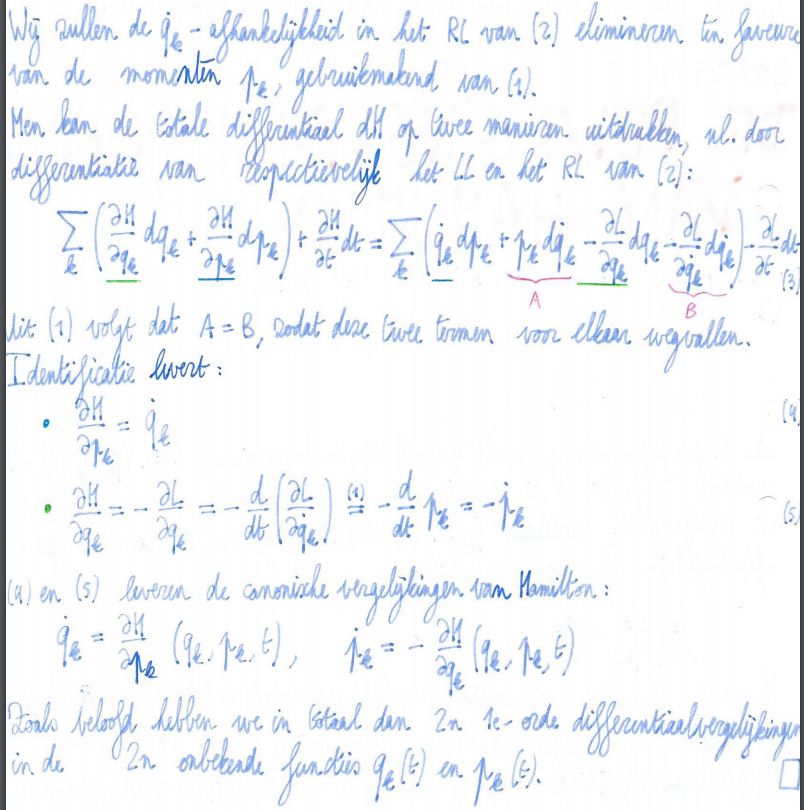 Wij zullen de q̇ₖ-afhankelijkheid in het RL van (2) elimineren ten faveure
van de momenten pₖ, gebruikmakend van (1).
Men kan de totale differentiaal dH op twee manieren uitdrukken, nl. door
differentiatie van respectievelijk het LL en het RL van (2):
∑ₖ (∂H/∂qₖ dqₖ + ∂H/∂pₖ dpₖ) + ∂H/∂t dt = ∑ₖ (q̇ₖ dpₖ + pₖ dq̇ₖ - ∂L/∂qₖ dqₖ - ∂L/∂q̇ₖ dq̇ₖ) - ∂L/∂t dt (3)
A B
Uit (1) volgt dat A = B, zodat deze twee termen voor elkaar wegvallen.
Identificatie levert:
• ∂H/∂pₖ = q̇ₖ (4
• ∂H/∂qₖ = - ∂L/∂qₖ = - d/dt (∂L/∂q̇ₖ) (1)= - d/dt pₖ = - ṗₖ (5)
(4) en (5) leveren de canonische vergelijkingen van Hamilton:
q̇ₖ = ∂H/∂pₖ (qₖ, pₖ, t), ṗₖ = - ∂H/∂qₖ (qₖ, pₖ, t)
Zoals beloofd hebben we in totaal dan 2n 1e-orde differentiaalvergelijkingen
in de 2n onbekende functies qₖ(t) en pₖ(t). □